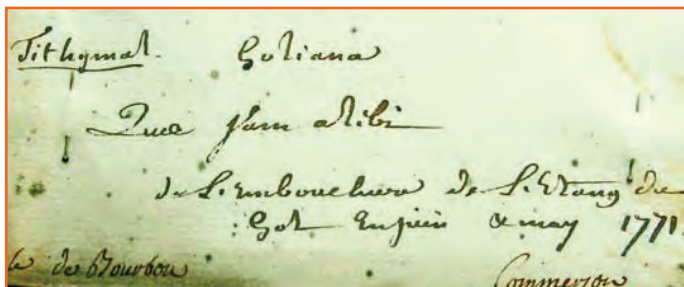 Tithymal. Goliana
Quæ jam alibi
de L'embouchure de L'Etang du
Gol en juin & may 1771
de Bourbon
Commerson